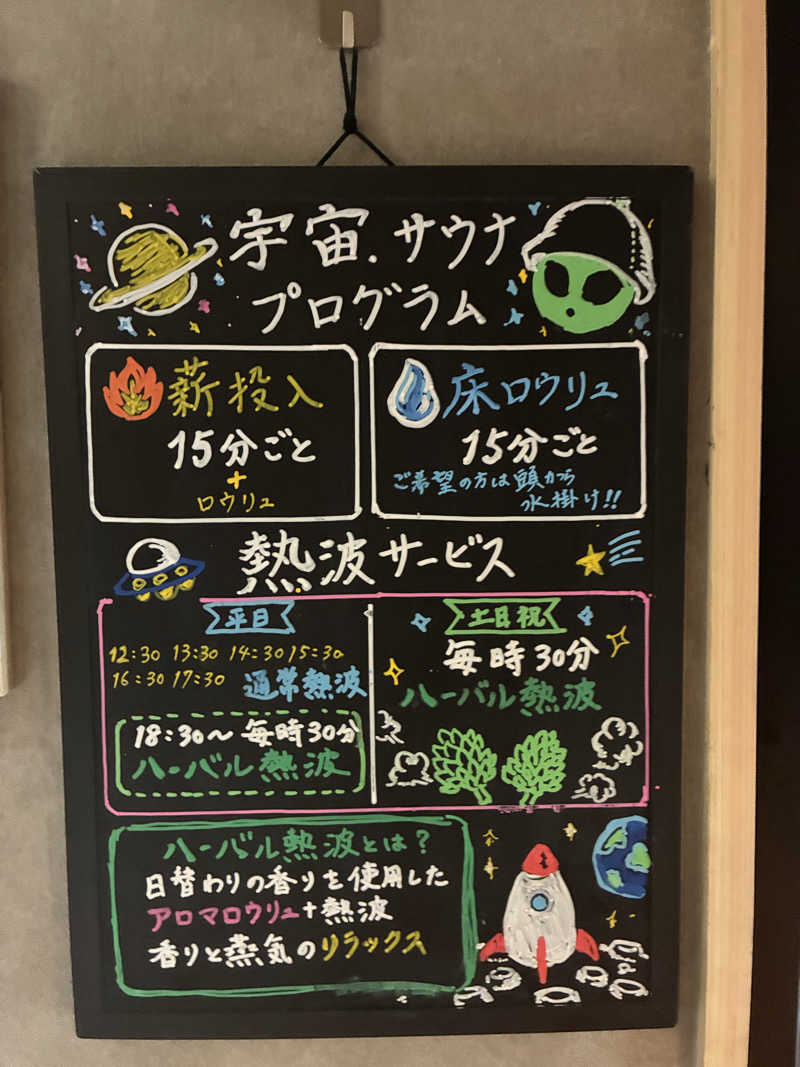 宇宙.サウナ
プログラム
薪投入
15分ごと
+
ロウリュ
床ロウリュ
15分ごと
ご希望の方は頭から
水掛け!!
熱波サービス
平日
12:30 13:30 14:30 15:30
16:30 17:30 通常熱波
18:30〜毎時30分
ハーバル熱波
土日祝
毎時30分
ハーバル熱波
ハーバル熱波とは?
日替わりの香りを使用した
アロマロウリュ+熱波
香りと蒸気のリラックス